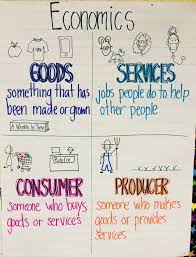 Economics
GOODS
something that has
been made or grown
SERVICES
jobs people do to help
other people
CONSUMER
someone who buys
goods or services
PRODUCER
someone who makes
goods or provides
services.